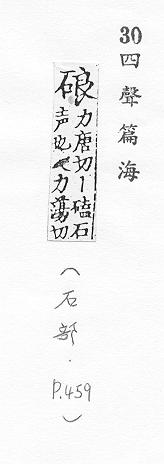 30 四聲篇海
硠力唐切丨磕石
声也又力蕩切
（石部．P.459）